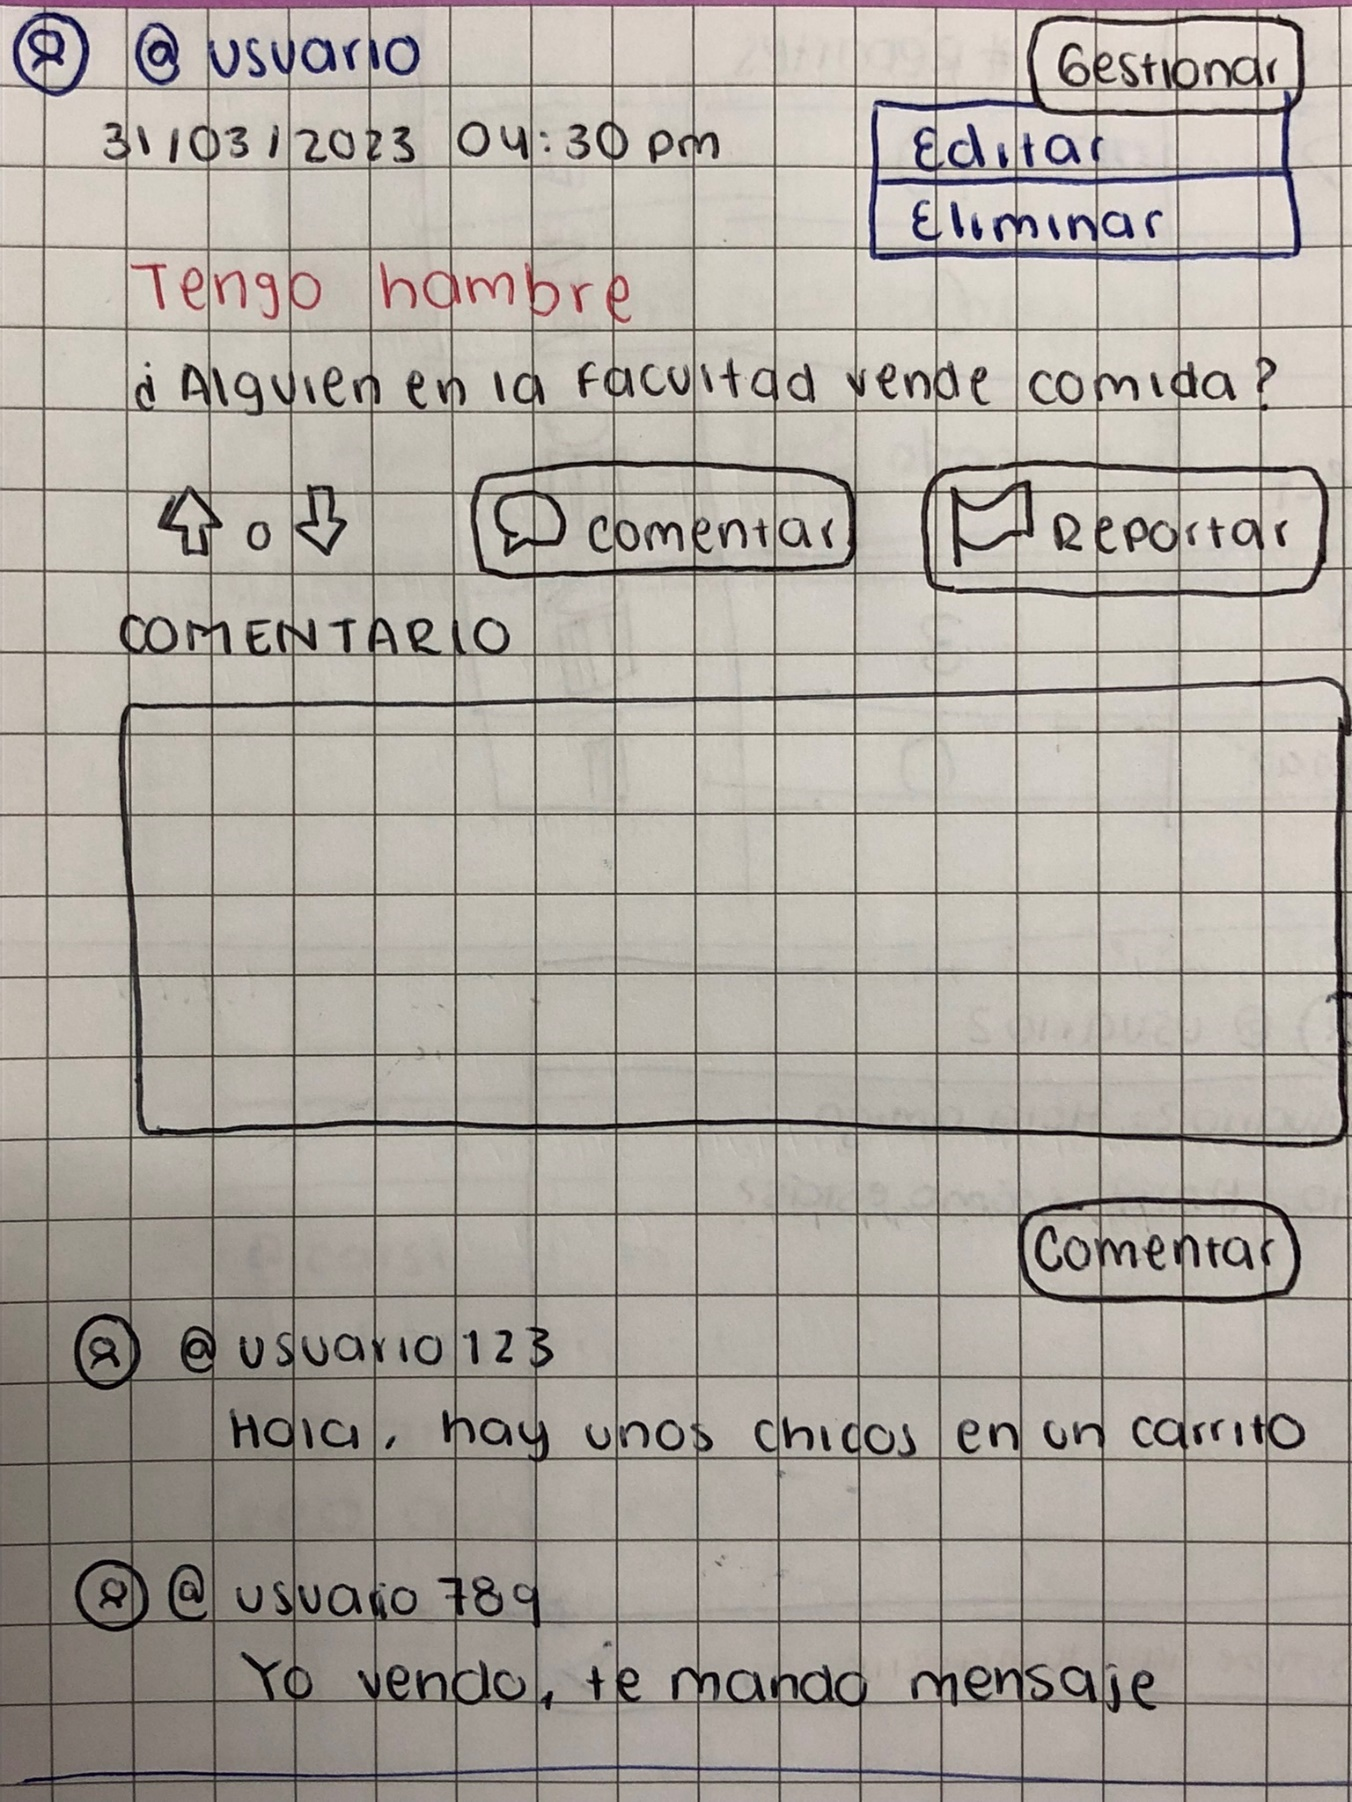 @usuario
Gestionar
31/03/2023 04:30 pm
Editar
Eliminar
Tengo hambre
¿Alguien en la facultad vende comida?
0
comentar
Reportar
COMENTARIO
Comentar
@usuario123
Hola, hay unos chicos en un carrito
@usuario789
Yo vendo, te mando mensaje